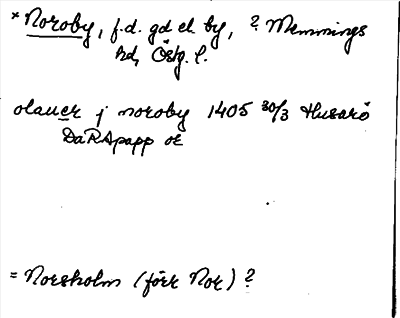 * Noroby, f.d. gd el. by, ? Memmings
hd, Östg. l.
olauer j noroby 1405 30/3 Husarö
DaRApapp or
= Norsholm (förr Nor) ?